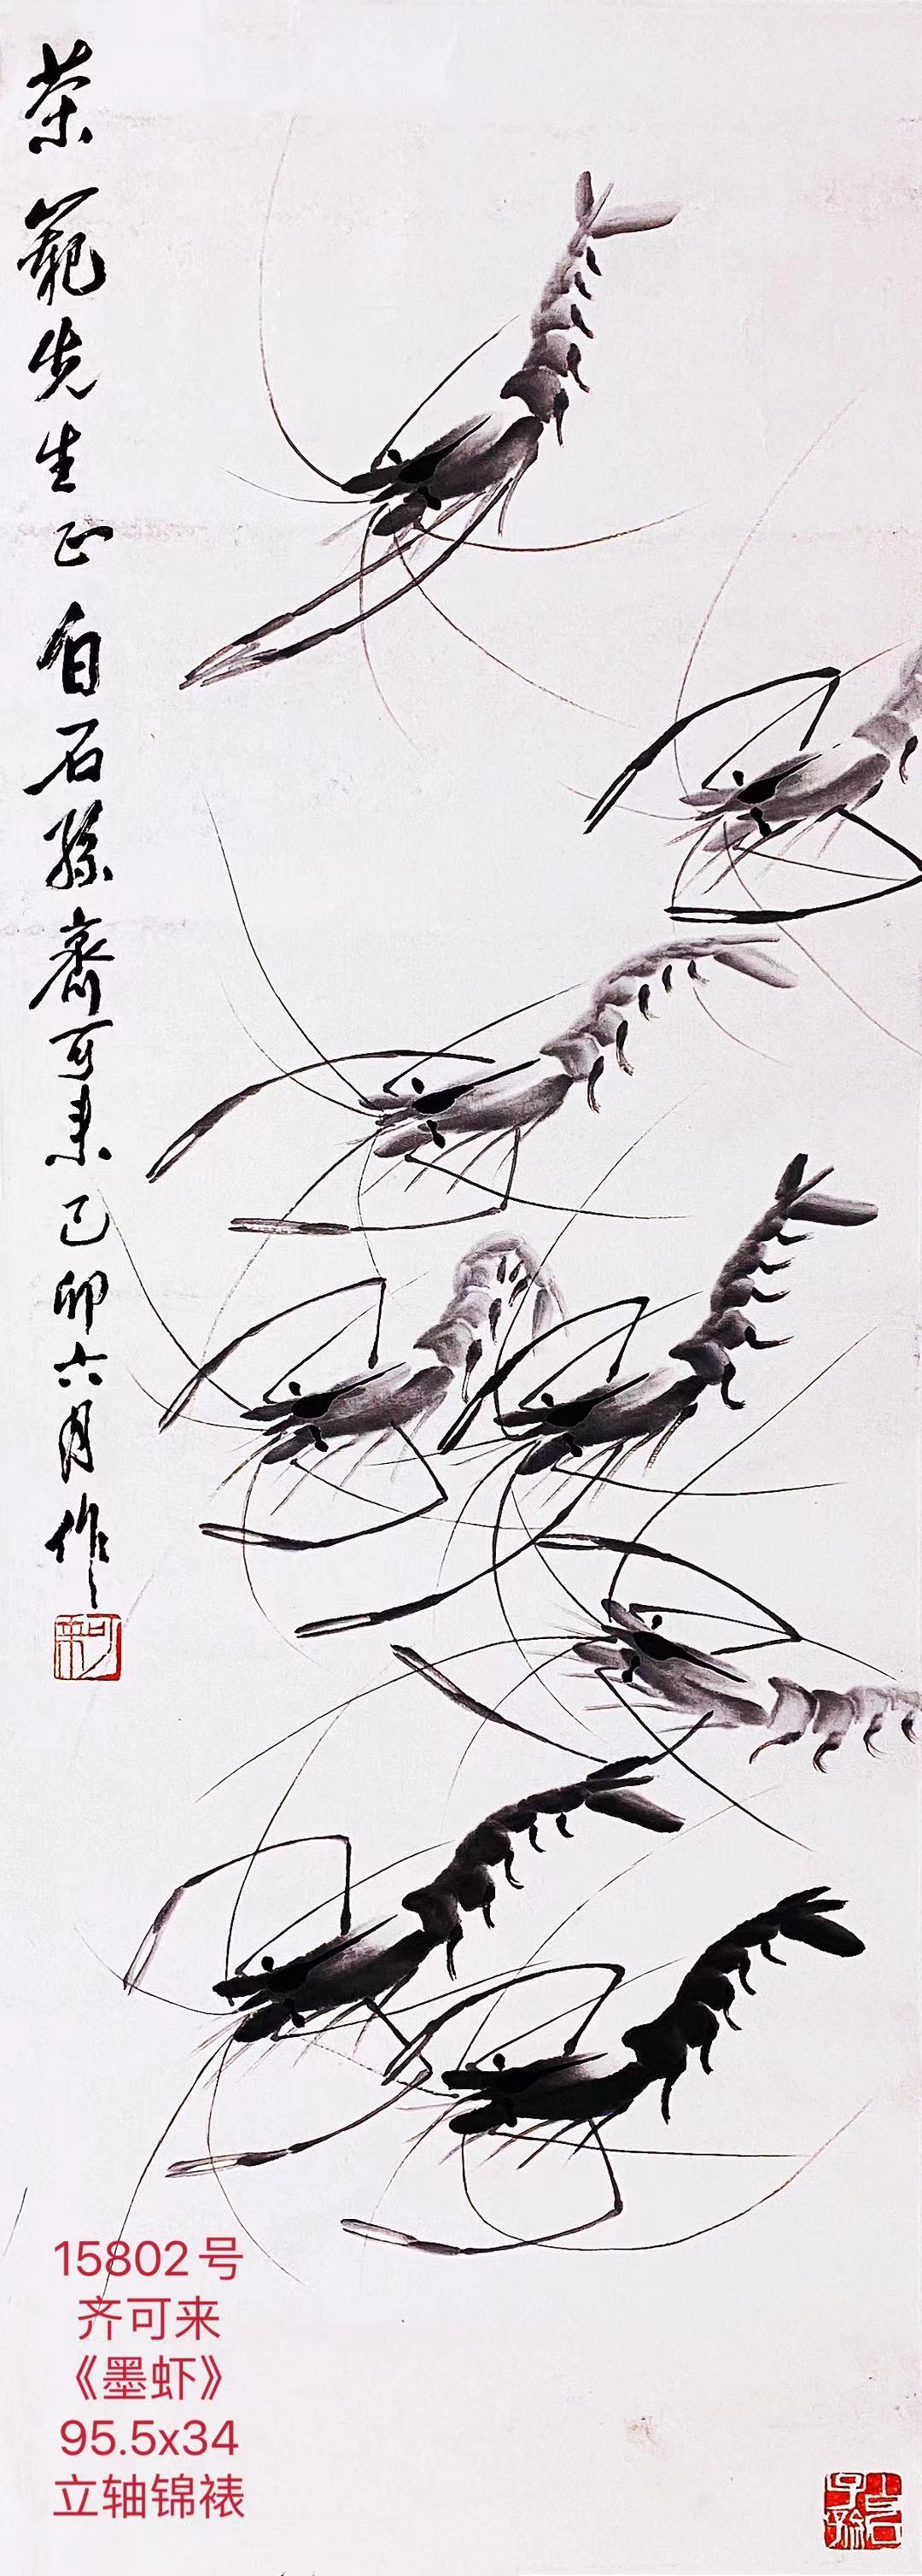 荣範先生正白石孫齊可來己卯六月作
可來
15802号
齐可来
《墨虾》
95.5x34
立轴锦裱